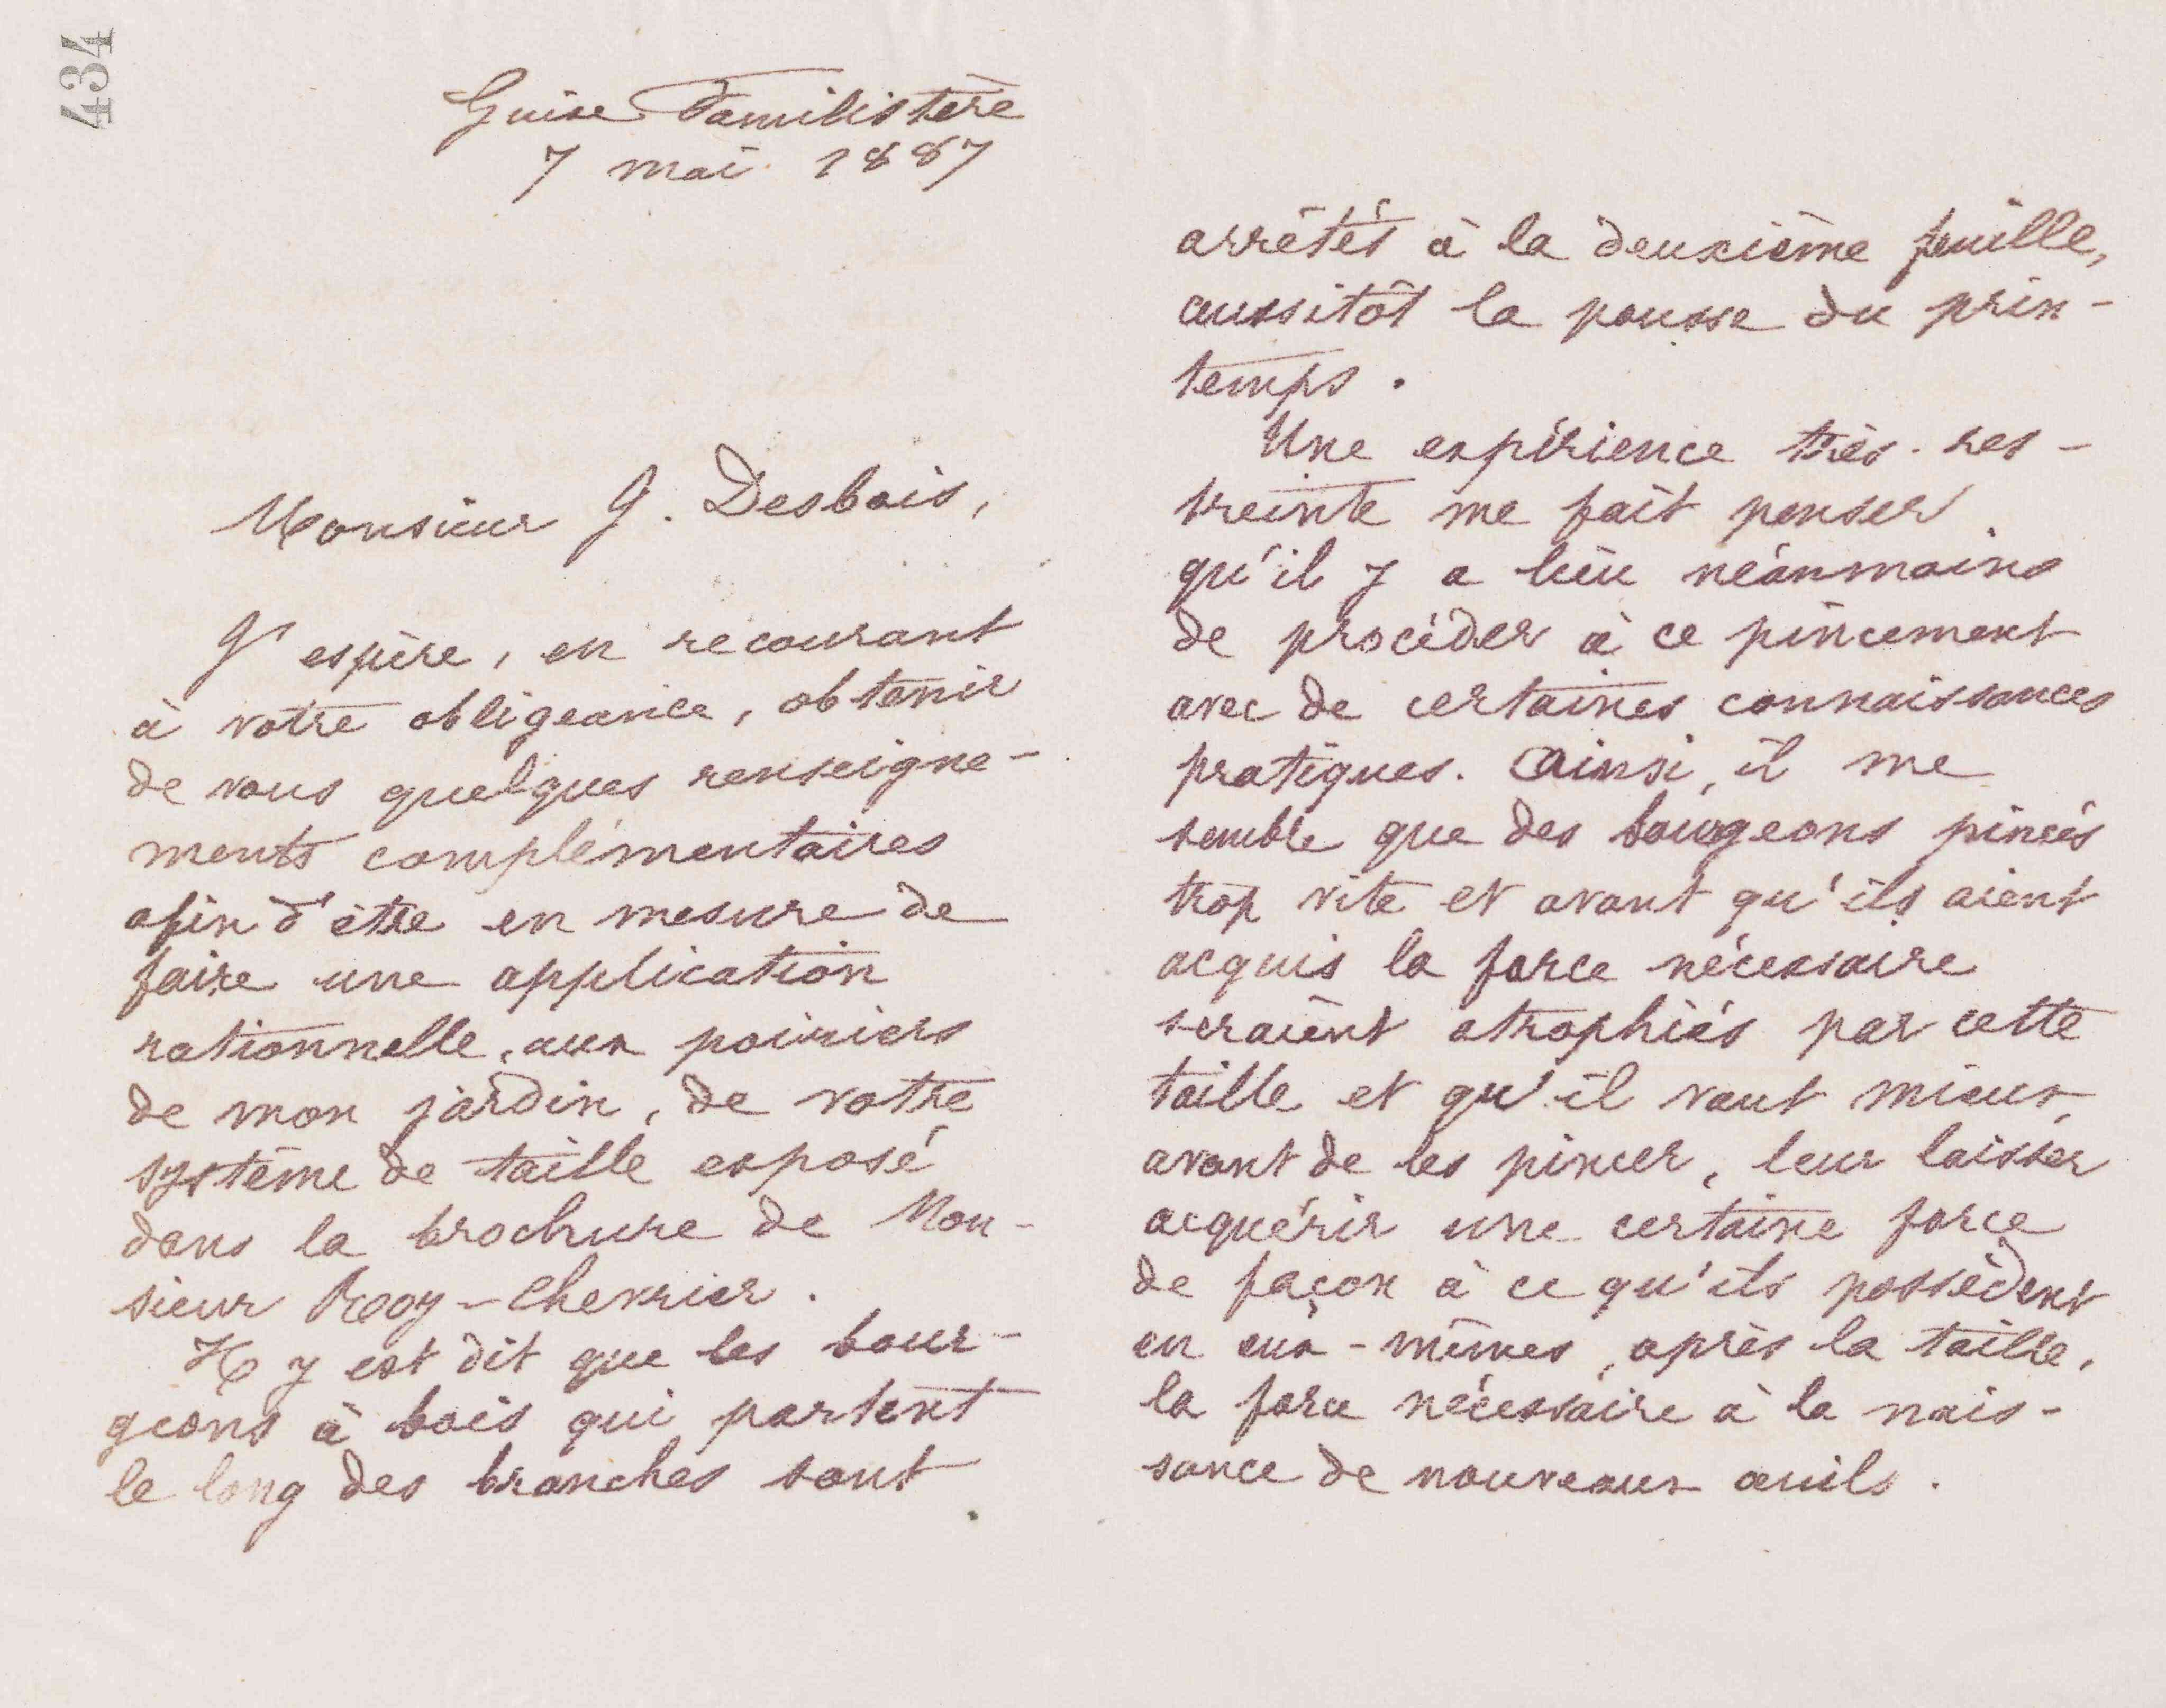 434
Guise Familistère
7 mai 1887
Monsieur G. Desbois,
J'espère, en recourant
à votre obligeance, obtenir
de vous quelques renseigne-
ments complémentaires
afin d'être en mesure de
faire une application
rationnelle, aux poiriers
de mon jardin, de votre
système de taille exposé
dans la brochure de Mon-
sieur Roy-Chevrier.
Il y est dit que les bour-
geons à bois qui partent
le long des branches sont
arrêtés à la deuxième feuille,
aussitôt la pousse du prin-
temps.
Une expérience très-res-
treinte me fait penser
qu'il y a lieu néanmoins
de procéder à ce pincement
avec de certaines connaissances
pratiques. Ainsi, il me
semble que des bourgeons pincés
trop vite et avant qu'ils aient
acquis la force nécessaire
seraient atrophiés par cette
taille et qu'il vaut mieux,
avant de les pincer, leur laisser
acquérir une certaine force
de façon à ce qu'ils possèdent
en eux-mêmes, après la taille,
la force nécessaire à la nais-
sance de nouveaux œuils.